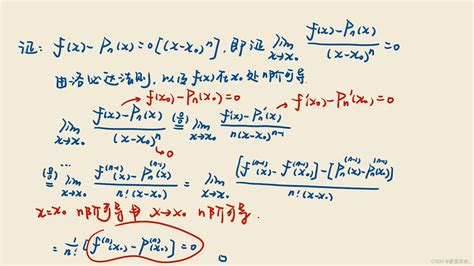 证: f(x)-Pn(x)=0[(x-x₀)ⁿ], 即证 lim x→x₀ (f(x)-Pn(x))/(x-x₀)ⁿ =0
由洛必达法则, 以及 f(x)在x₀处n阶可导
f(x₀)-Pn(x₀)=0 f'(x₀)-Pn'(x₀)=0
lim x→x₀ (f(x)-Pn(x))/(x-x₀)ⁿ =(0/0) lim x→x₀ (f'(x)-Pn'(x))/n(x-x₀)ⁿ⁻¹
→0
=(0/0) ··· lim x→x₀ (f⁽ⁿ⁻¹⁾(x)-Pn⁽ⁿ⁻¹⁾(x))/n!(x-x₀) = lim x→x₀ ([f⁽ⁿ⁻¹⁾(x)-f⁽ⁿ⁻¹⁾(x₀)]-[Pn⁽ⁿ⁻¹⁾(x)-Pn⁽ⁿ⁻¹⁾(x₀)])/n!(x-x₀)
x=x₀ n阶可导 x→x₀ n阶可导.
= 1/n! [f⁽ⁿ⁾(x₀)-Pn⁽ⁿ⁾(x₀)]=0